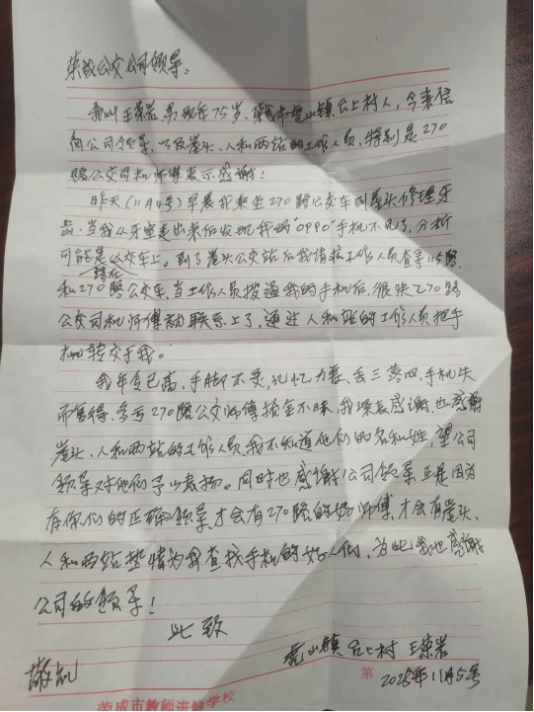 荣成公交公司领导:
我叫王荣岩,男现年75岁,荣成市虎山镇台上村人,今来信
向公司领导,以及崖头、人和两站的工作人员,特别是270
路公交司机师傅表示感谢!
昨天(11月4号)早晨我乘坐270路公交车到崖头修理牙
齿,当我从牙室走出来后发现我的"OPPO"手机不见了,分析
可能是落在公交车上。到了崖头公交站后我请求工作人员查寻115路
和270路公交车,当工作人员拨通我的手机后,很快270路
公交司机师傅就联系上了,通过人和站的工作人员把手
机转交于我。
我年令已高,手脚不灵,记忆力差,丢三落四,手机失
而复得,多亏270路公交师傅拾金不昧,我深表感谢,也感谢
崖头、人和两站的工作人员,我不知道他们的名和姓,望公司
领导对他们予以表扬。同时也感谢公司领导,正是因为
有你们的正确领导,才会有270路的好师傅,才会有崖头、
人和两站热情为我查找手机的好人们,为此我也感谢
公司的领导!
此致
敬礼
虎山镇台上村 王荣岩
第
2025年11月5号
荣成市教师进修学校